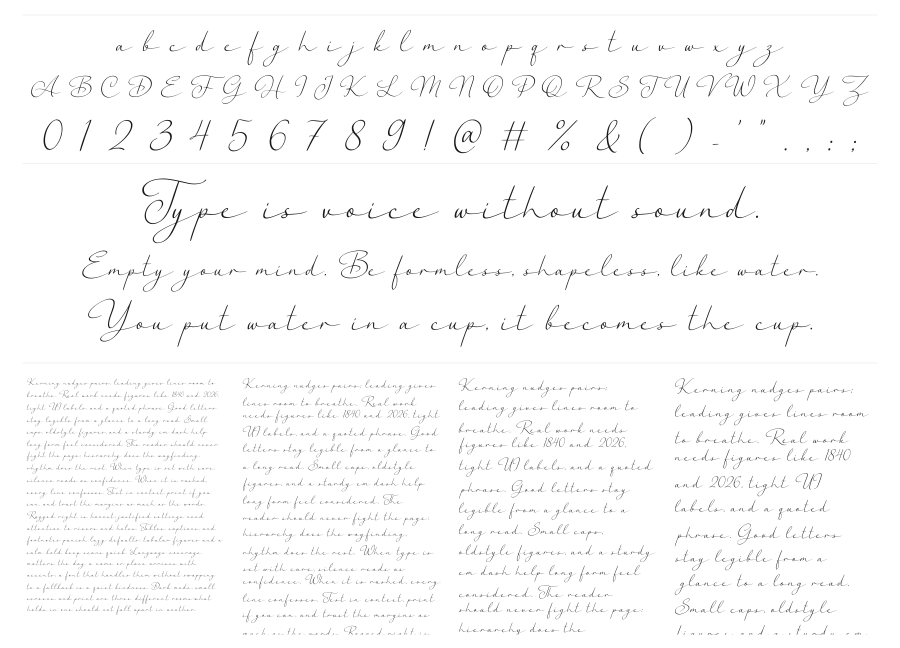 a b c d e f g h i j k l m n o p q r s t u v w x y z
A B C D E F G H I J K L M N O P Q R S T U V W X Y Z
0 1 2 3 4 5 6 7 8 9 ! @ # % & ( ) - ' " . , : ;
Type is voice without sound.
Empty your mind. Be formless, shapeless, like water.
You put water in a cup, it becomes the cup.
Kerning nudges pairs; leading gives lines room to
breathe. Real work needs figures like 1840 and 2026,
tight UI labels, and a quoted phrase. Good letters
stay legible from a glance to a long read. Small
caps, oldstyle figures, and a sturdy em dash help
long form feel considered. The reader should never
fight the page; hierarchy does the wayfinding,
rhythm does the rest. When type is set with care,
silence reads as confidence. When it is rushed,
every line confesses. Test in context, print if you
can, and trust the margins as much as the words.
Ragged right is honest; justified settings need
attention to rivers and holes. Tables, captions, and
footnotes punish lazy defaults; tabular figures and a
calm bold keep worse quiet. Language coverage
matters the day a name or place arrives with
accents; a font that handles them without swapping
to a fallback is a quiet kindness. Dark mode, small
screens, and print are three different rooms; what
holds in one should not fall apart in another.
Kerning nudges pairs; leading gives
lines room to breathe. Real work
needs figures like 1840 and 2026, tight
UI labels, and a quoted phrase. Good
letters stay legible from a glance to
a long read. Small caps, oldstyle
figures, and a sturdy em dash help
long form feel considered. The
reader should never fight the page;
hierarchy does the wayfinding,
rhythm does the rest. When type is
set with care, silence reads as
confidence. When it is rushed, every
line confesses. Test in context, print
if you can, and trust the margins as
much as the words. Ragged right is
Kerning nudges pairs;
leading gives lines room to
breathe. Real work needs
figures like 1840 and 2026,
tight UI labels, and a quoted
phrase. Good letters stay
legible from a glance to a
long read. Small caps,
oldstyle figures, and a sturdy
em dash help long form feel
considered. The reader
should never fight the page;
hierarchy does the
Kerning nudges pairs;
leading gives lines room
to breathe. Real work
needs figures like 1840
and 2026, tight UI
labels, and a quoted
phrase. Good letters
stay legible from a
glance to a long read.
Small caps, oldstyle
figures, and a sturdy em